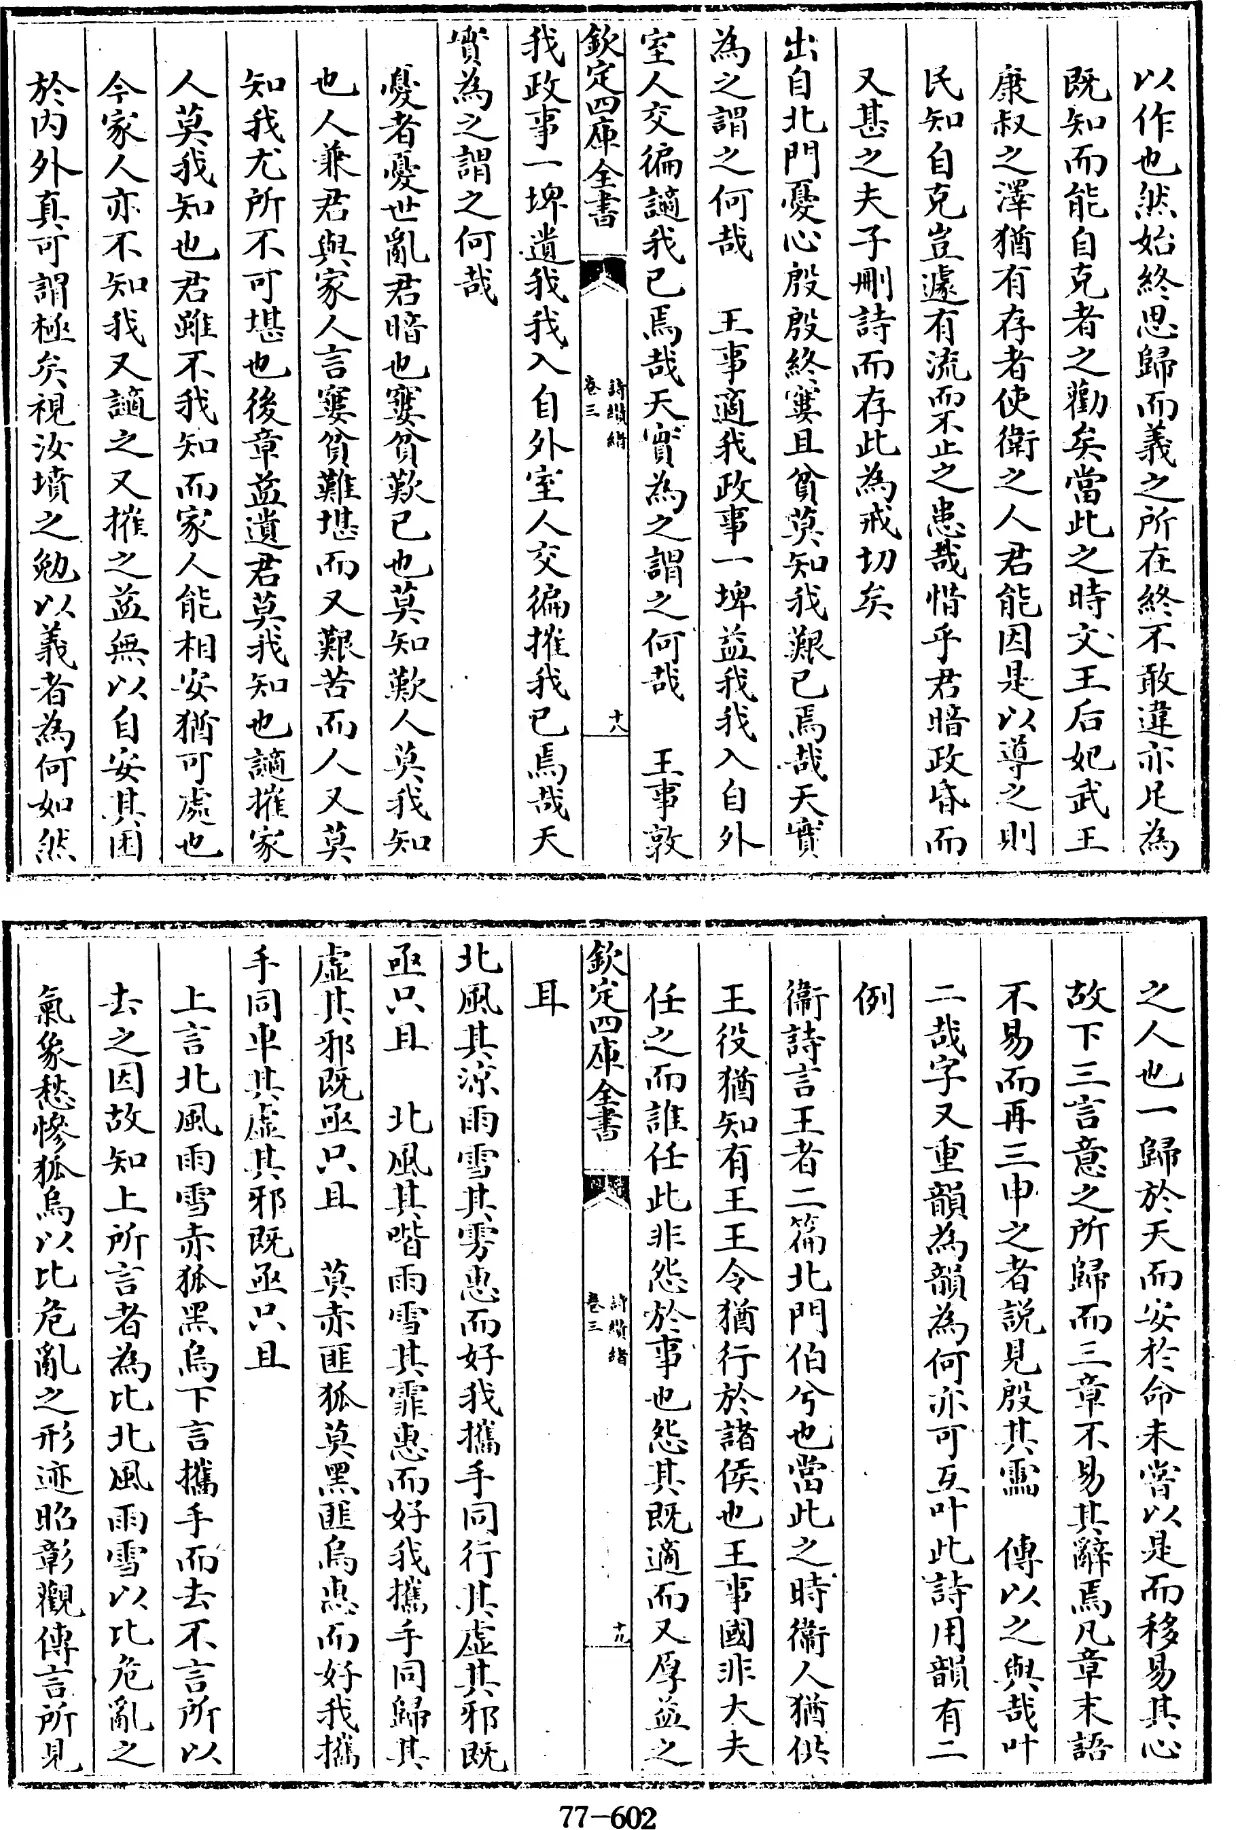 以作也然始終思歸而義之所在終不敢違亦足為
既知而能自克者之勸矣當此之時文王后妃武王
康叔之澤猶有存者使衛之人君能因是以導之則
民知自克豈遽有流而不止之患哉惜乎君暗政昏而
又甚之夫子刪詩而存此為戒切矣
出自北門憂心殷殷終窶且貧莫知我艱已焉哉天實
為之謂之何哉　王事適我政事一埤益我我入自外
室人交徧讁我已焉哉天實為之謂之何哉　王事敦
欽定四庫全書　詩纘緒　卷三　十八
我政事一埤遺我我入自外室人交徧摧我已焉哉天
實為之謂之何哉
憂者憂世亂君暗也窶貧歎已也莫知歎人莫我知
也人兼君與家人言窶貧難堪而又艱苦而人又莫
知我尤所不可堪也後章益遺君莫我知也讁摧家
人莫我知也君雖不我知而家人能相安猶可處也
今家人亦不知我又讁之又摧之益無以自安其困
於內外真可謂極矣視汝墳之勉以義者為何如然
之人也一歸於天而安於命未嘗以是而移易其心
故下三言意之所歸而三章不易其辭焉凡章末語
不易而再三申之者説見殷其靁　傳以之與哉叶
二哉字又重韻為韻為何亦可互叶此詩用韻有二
例
衞詩言王者二篇北門伯兮也當此之時衞人猶供
王役猶知有王王令猶行於諸侯也王事國非大夫
任之而誰任此非怨於事也怨其既適而又厚益之
欽定四庫全書　詩纘緒　卷三　十九
耳
北風其涼雨雪其雱惠而好我攜手同行其虛其邪既
亟只且　北風其喈雨雪其霏惠而好我攜手同歸其
虛其邪既亟只且　莫赤匪狐莫黑匪烏惠而好我攜
手同車其虛其邪既亟只且
上言北風雨雪赤狐黑烏下言攜手而去不言所以
去之因故知上所言者為比北風雨雪以比危亂之
氣象愁慘狐烏以比危亂之形迹昭彰觀傳言所見
77-602